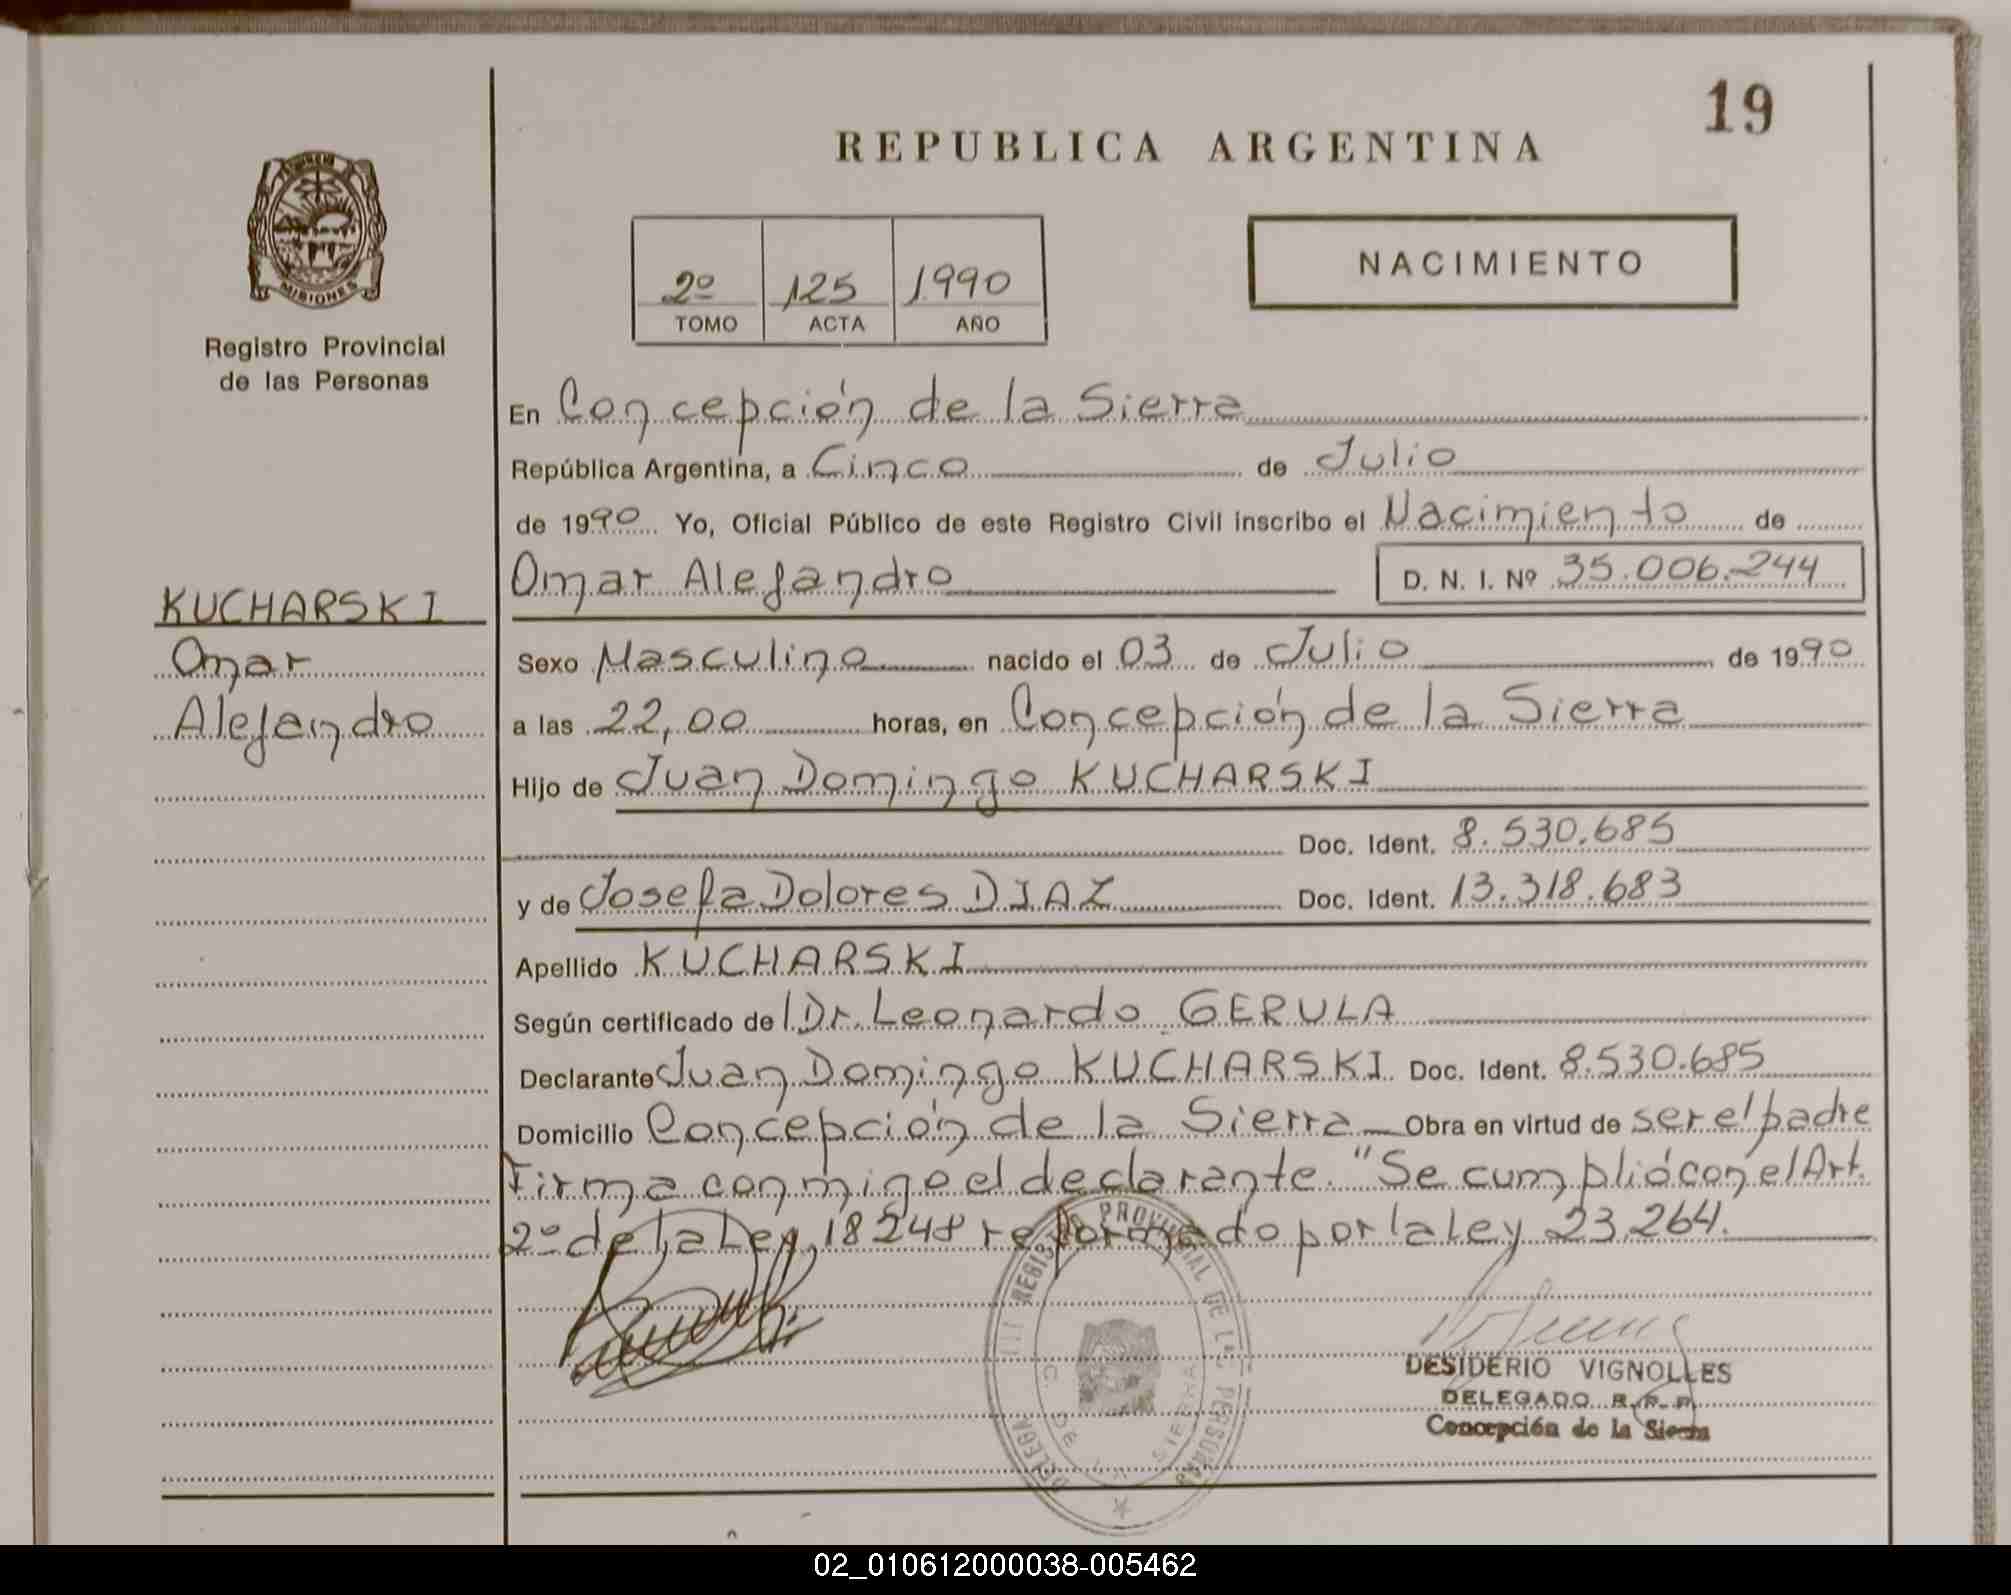 19
REPUBLICA ARGENTINA
MISIONES
Registro Provincial
de las Personas
2º 125 1990
TOMO ACTA AÑO
NACIMIENTO
En Concepción de la Sierra
República Argentina, a Cinco de Julio
de 1990 Yo, Oficial Público de este Registro Civil inscribo el Nacimiento de
Omar Alejandro D. N. I. Nº 35.006.244
KUCHARSKI
Omar
Alejandro
Sexo Masculino nacido el 03 de Julio de 1990
a las 22,00 horas, en Concepción de la Sierra
Hijo de Juan Domingo KUCHARSKI
Doc. Ident. 8.530.685
y de Josefa Dolores DIAZ Doc. Ident. 13.318.683
Apellido KUCHARSKI
Según certificado del Dr. Leonardo GERULA
Declarante Juan Domingo KUCHARSKI Doc. Ident. 8.530.685
Domicilio Concepción de la Sierra Obra en virtud de ser el padre
Firma conmigo el declarante. "Se cumplió con el Art.
2º de la Ley 18248 reformado por la Ley 23.264.
REGISTRO PROVINCIAL DE LAS PERSONAS
C. DE LA SIERRA
DESIDERIO VIGNOLLES
DELEGADO R.P.P.
Concepción de la Sierra
02_010612000038-005462